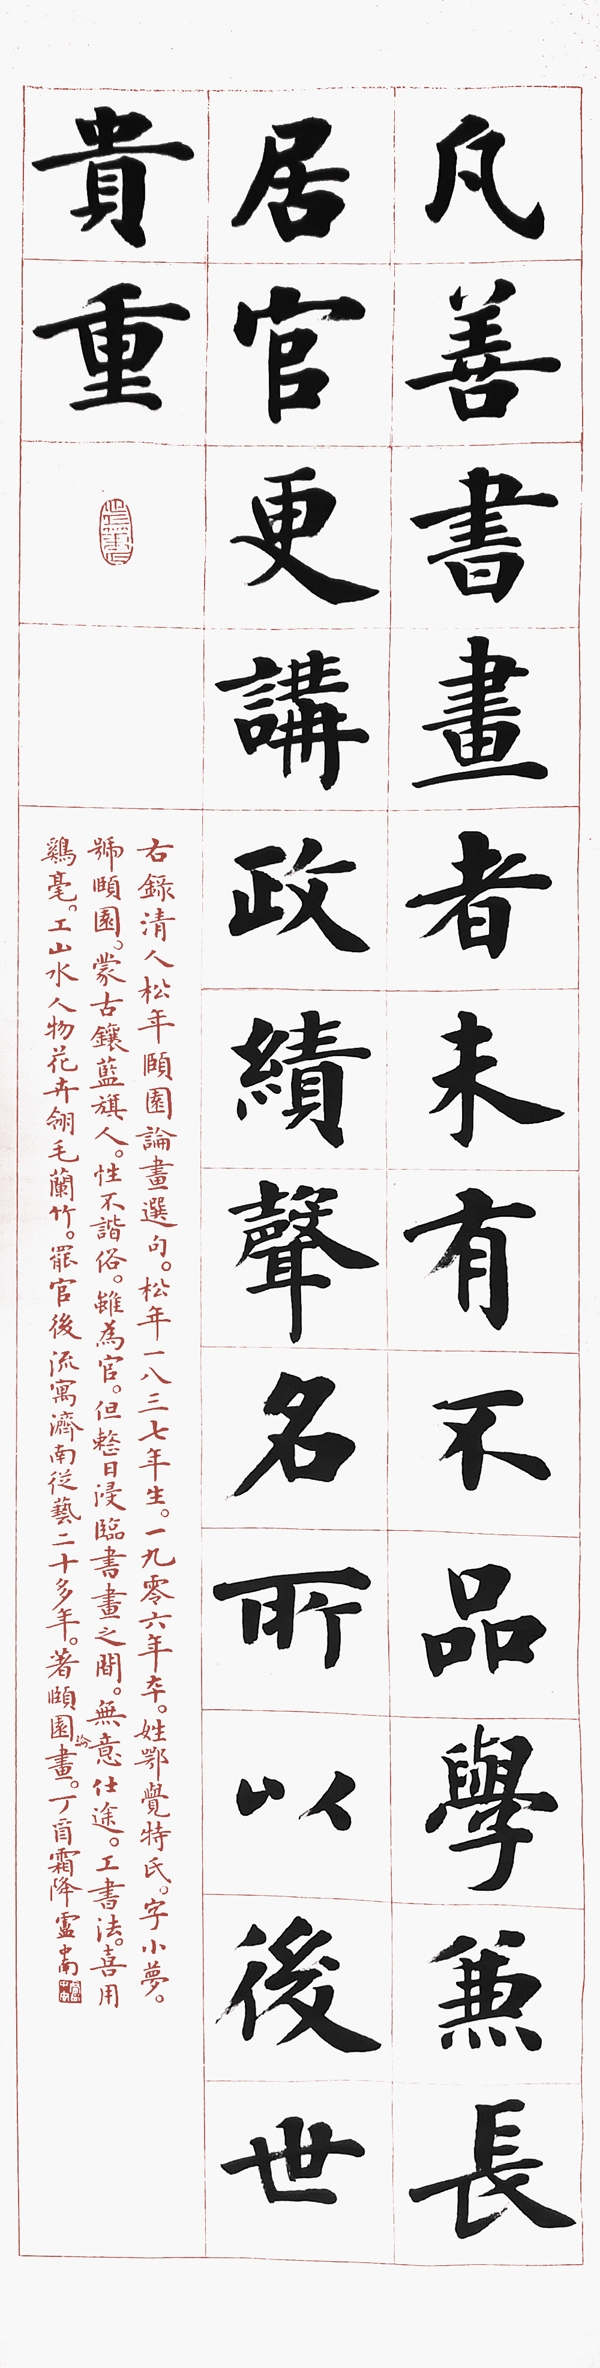 凡善書畫者未有不品學兼長
居官更講政績聲名所以後世
貴重
右錄清人松年頤園論畫選句。松年一八三七年生。一九零六年卒。姓鄂覺特氏。字小夢。
號頤園。蒙古鑲藍旗人。性不諧俗。雖為官。但整日浸臨書畫之間。無意仕途。工書法。喜用
鷄毫。工山水人物花卉翎毛蘭竹。罷官後流寓濟南從藝二十多年。著頤園論畫。丁酉霜降盧中南